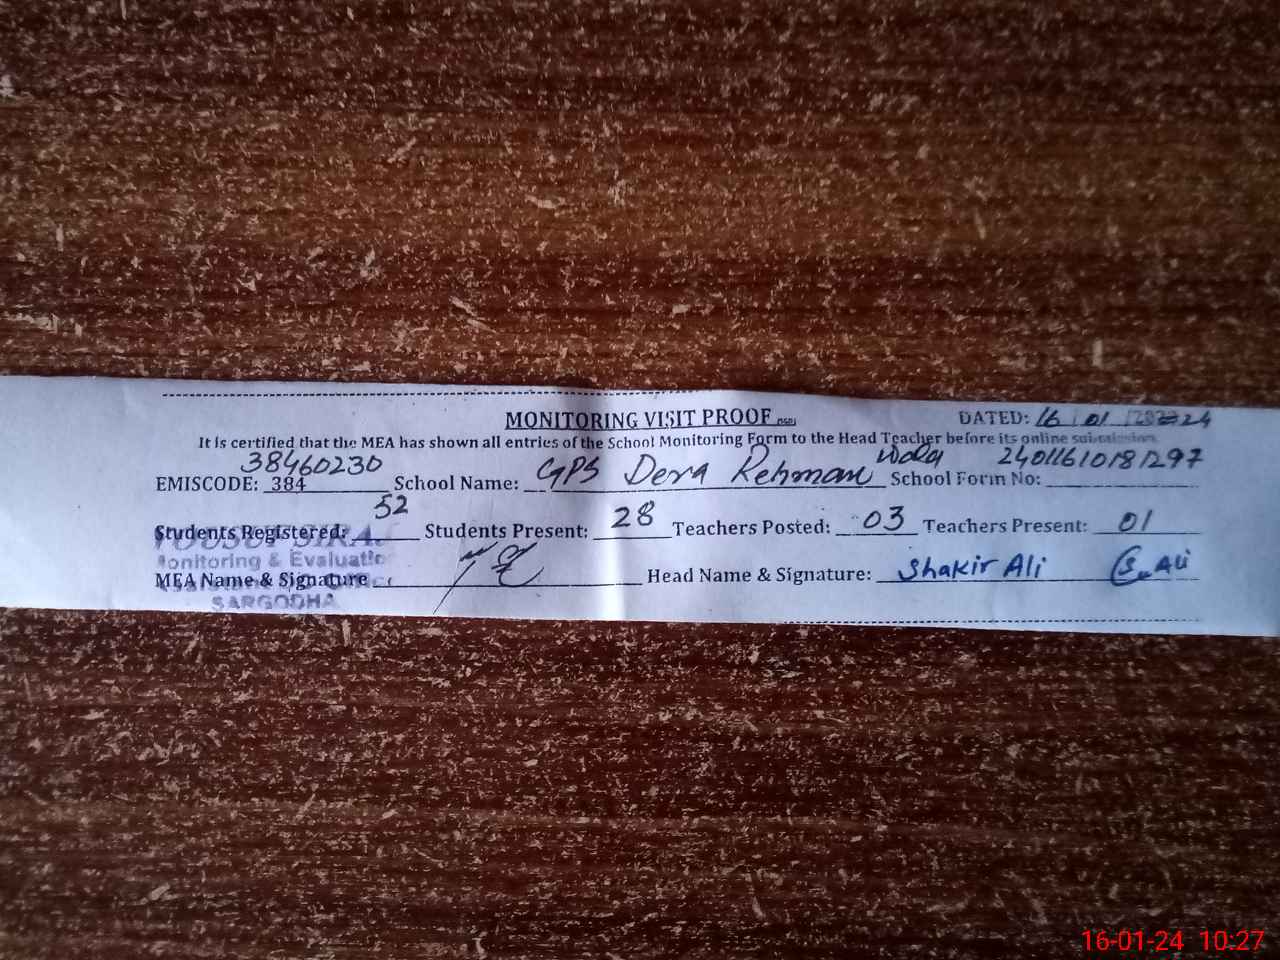 MONITORING VISIT PROOF DATED: 16 01 2024
It is certified that the MEA has shown all entries of the School Monitoring Form to the Head Teacher before its online submission.
EMISCODE: 384 38460230 School Name: GPS Dera Rehman wala School Form No: 24011610181297
Students Registered: 52 Students Present: 28 Teachers Posted: 03 Teachers Present: 01
Monitoring & Evaluation
MEA Name & Signature Head Name & Signature: Shakir Ali S. Ali
SARGODHA
16-01-24 10:27